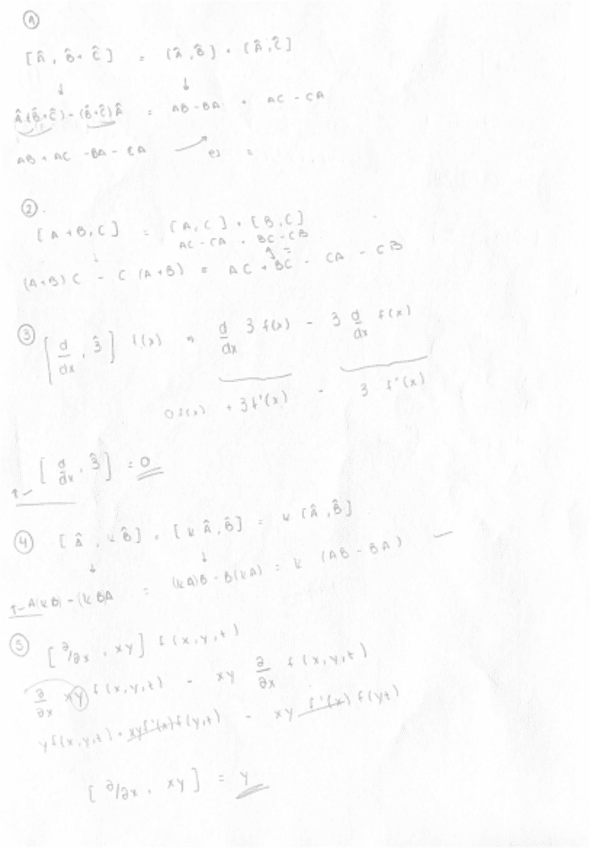 ①
[Â, B̂+Ĉ] = [Â, B̂] + [Â, Ĉ]
↓ ↓
Â(B̂+Ĉ)-(B̂+Ĉ)Â = AB-BA + AC-CA
AB+AC-BA-CA → es =
②.
[A+B,C] = [A,C] + [B,C]
AC-CA + BC-CB
(A+B)C - C(A+B) = AC+BC - CA - CB
③ [d/dx, 3̂] f(x) = d/dx 3 f(x) - 3 d/dx f(x)
0f(x) + 3f'(x) - 3 f'(x)
[d/dx, 3̂] = 0
④ [Â, kB̂] = [kÂ, B̂] = k[Â, B̂]
↓ ↓
A(kB)-(kB)A = (kA)B-B(kA) = k (AB-BA)
⑤ [∂/∂x, xy] f(x,y,t)
∂/∂x xy f(x,y,t) - xy ∂/∂x f(x,y,t)
yf(x,y,t)+xyf'(x)f(y,t) - xy f'(x) f(y,t)
[∂/∂x, xy] = y